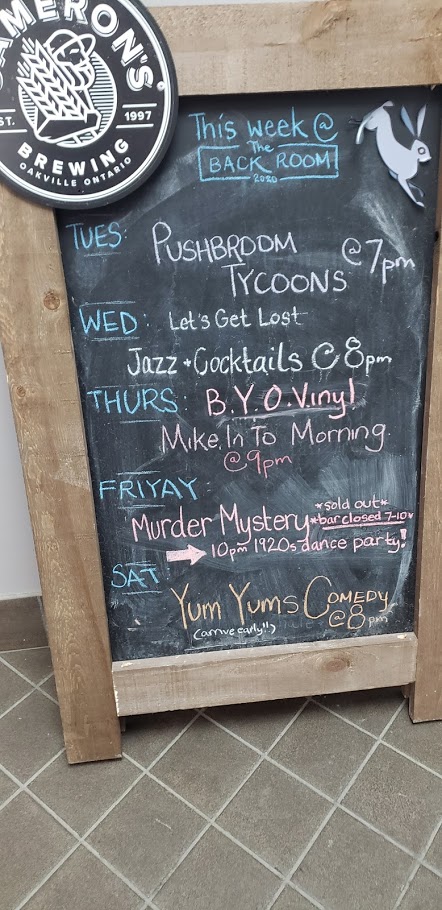 CAMERON'S
EST. 1997
BREWING
OAKVILLE ONTARIO
This week @
The
BACK ROOM
2020
TUES: PUSHBROOM @7pm
TYCOONS
WED: Let's Get Lost
Jazz + Cocktails @ 8pm
THURS: B.Y.O.Vinyl
Mike In To Morning
@9pm
FRIYAY
*sold out*
Murder Mystery *bar closed 7-10*
10pm 1920s dance party!
SAT
Yum Yums COMEDY
(arrive early!!) @8pm